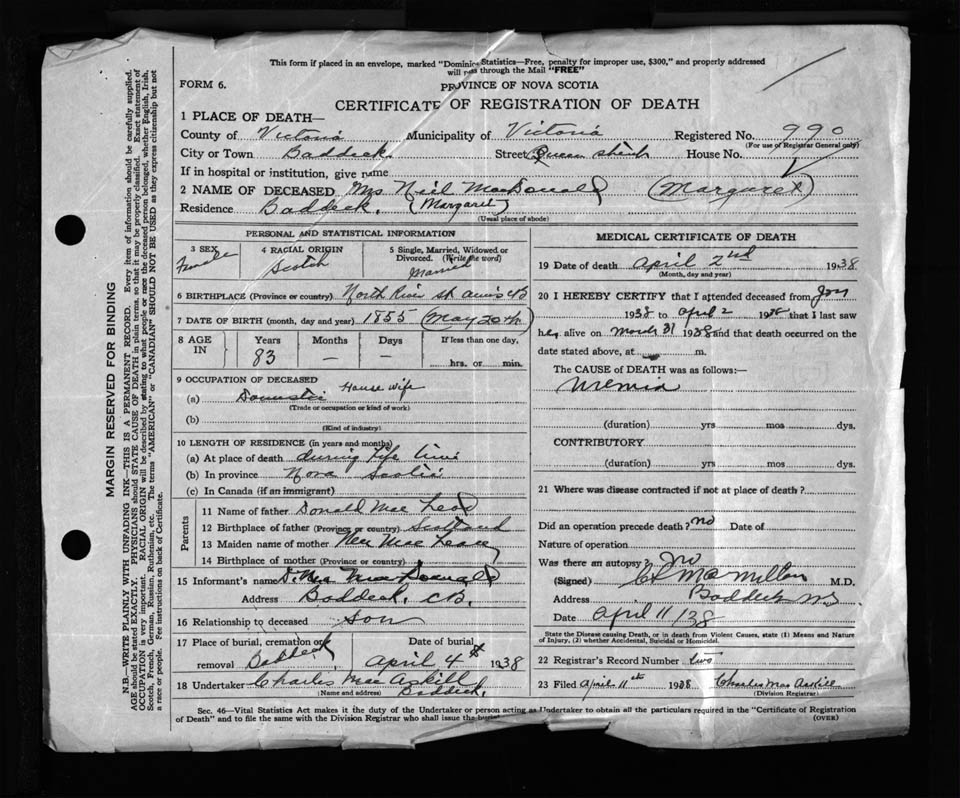 This form if placed in an envelope, marked "Dominion Statistics—Free, penalty for improper use, $300," and properly addressed
will pass through the Mail "FREE"
FORM 6.
PROVINCE OF NOVA SCOTIA
CERTIFICATE OF REGISTRATION OF DEATH
1 PLACE OF DEATH—
County of Victoria Municipality of Victoria Registered No. 990
(For use of Registrar General only)
City or Town Baddeck. Street Queen House No.
If in hospital or institution, give name
2 NAME OF DECEASED Mrs Neil MacDonald (Margaret)
Residence Baddeck. (Margaret)
(Usual place of abode)
PERSONAL AND STATISTICAL INFORMATION
3 SEX Female
4 RACIAL ORIGIN Scotch
5 Single, Married, Widowed or Divorced. (Write the word) Married
6 BIRTHPLACE (Province or country) North River St Anns CB
7 DATE OF BIRTH (month, day and year) 1855 (May 20th)
8 AGE IN Years Months Days If less than one day,
83 — — hrs. or min.
9 OCCUPATION OF DECEASED House wife
(a) Domestic
(Trade or occupation or kind of work)
(b)
(Kind of industry)
10 LENGTH OF RESIDENCE (in years and months)
(a) At place of death during life time
(b) In province Nova Scotia
(c) In Canada (if an immigrant)
Parents
11 Name of father Donald Mac Leod
12 Birthplace of father (Province or country) Scotland
13 Maiden name of mother Mac
14 Birthplace of mother (Province or country)
15 Informant's name MacDonald
Address Baddeck, CB.
16 Relationship to deceased Son
17 Place of burial, cremation or removal Baddeck
Date of burial April 4th 1938
18 Undertaker Charles Mac Askill
(Name and address) Baddeck.
MEDICAL CERTIFICATE OF DEATH
19 Date of death April 2nd 1938
(Month, day and year)
20 I HEREBY CERTIFY that I attended deceased from Jan
1938 to April 2 1938 that I last saw
her alive on March 31 1938 and that death occurred on
date stated above, at m.
The CAUSE of DEATH was as follows:—
Uremia
(duration) yrs mos dys.
CONTRIBUTORY
(duration) yrs mos dys.
21 Where was disease contracted if not at place of death?
Did an operation precede death? no Date of
Nature of operation
Was there an autopsy? no
(Signed) McMillan M.D.
Address Baddeck NS
Date April 11/38
State the Disease causing Death, or in death from Violent Causes, state (1) Means and Nature
of Injury, (2) whether Accidental, Suicidal or Homicidal.
22 Registrar's Record Number two
23 Filed April 11th 1938 Charles Mac Askill
(Division Registrar)
Sec. 46—Vital Statistics Act makes it the duty of the Undertaker or person acting as Undertaker to obtain all the particulars required in the "Certificate of Registration
of Death" and to file the same with the Division Registrar who shall issue the burial
(OVER)
MARGIN RESERVED FOR BINDING
N.B.—WRITE PLAINLY WITH UNFADING INK—THIS IS A PERMANENT RECORD. Every item of information should be carefully supplied.
AGE should be stated EXACTLY. PHYSICIANS should STATE CAUSE OF DEATH in plain terms, so that it may be properly classified. Exact statement of
OCCUPATION is very important. RACIAL ORIGIN will be described by stating to what people or race the deceased person belonged, whether English, Irish,
Scotch, French, German, Russian, Ruthenian, etc. The terms "AMERICAN" or "CANADIAN" SHOULD NOT BE USED as they express citizenship but not
a race or people. See instructions on back of Certificate.